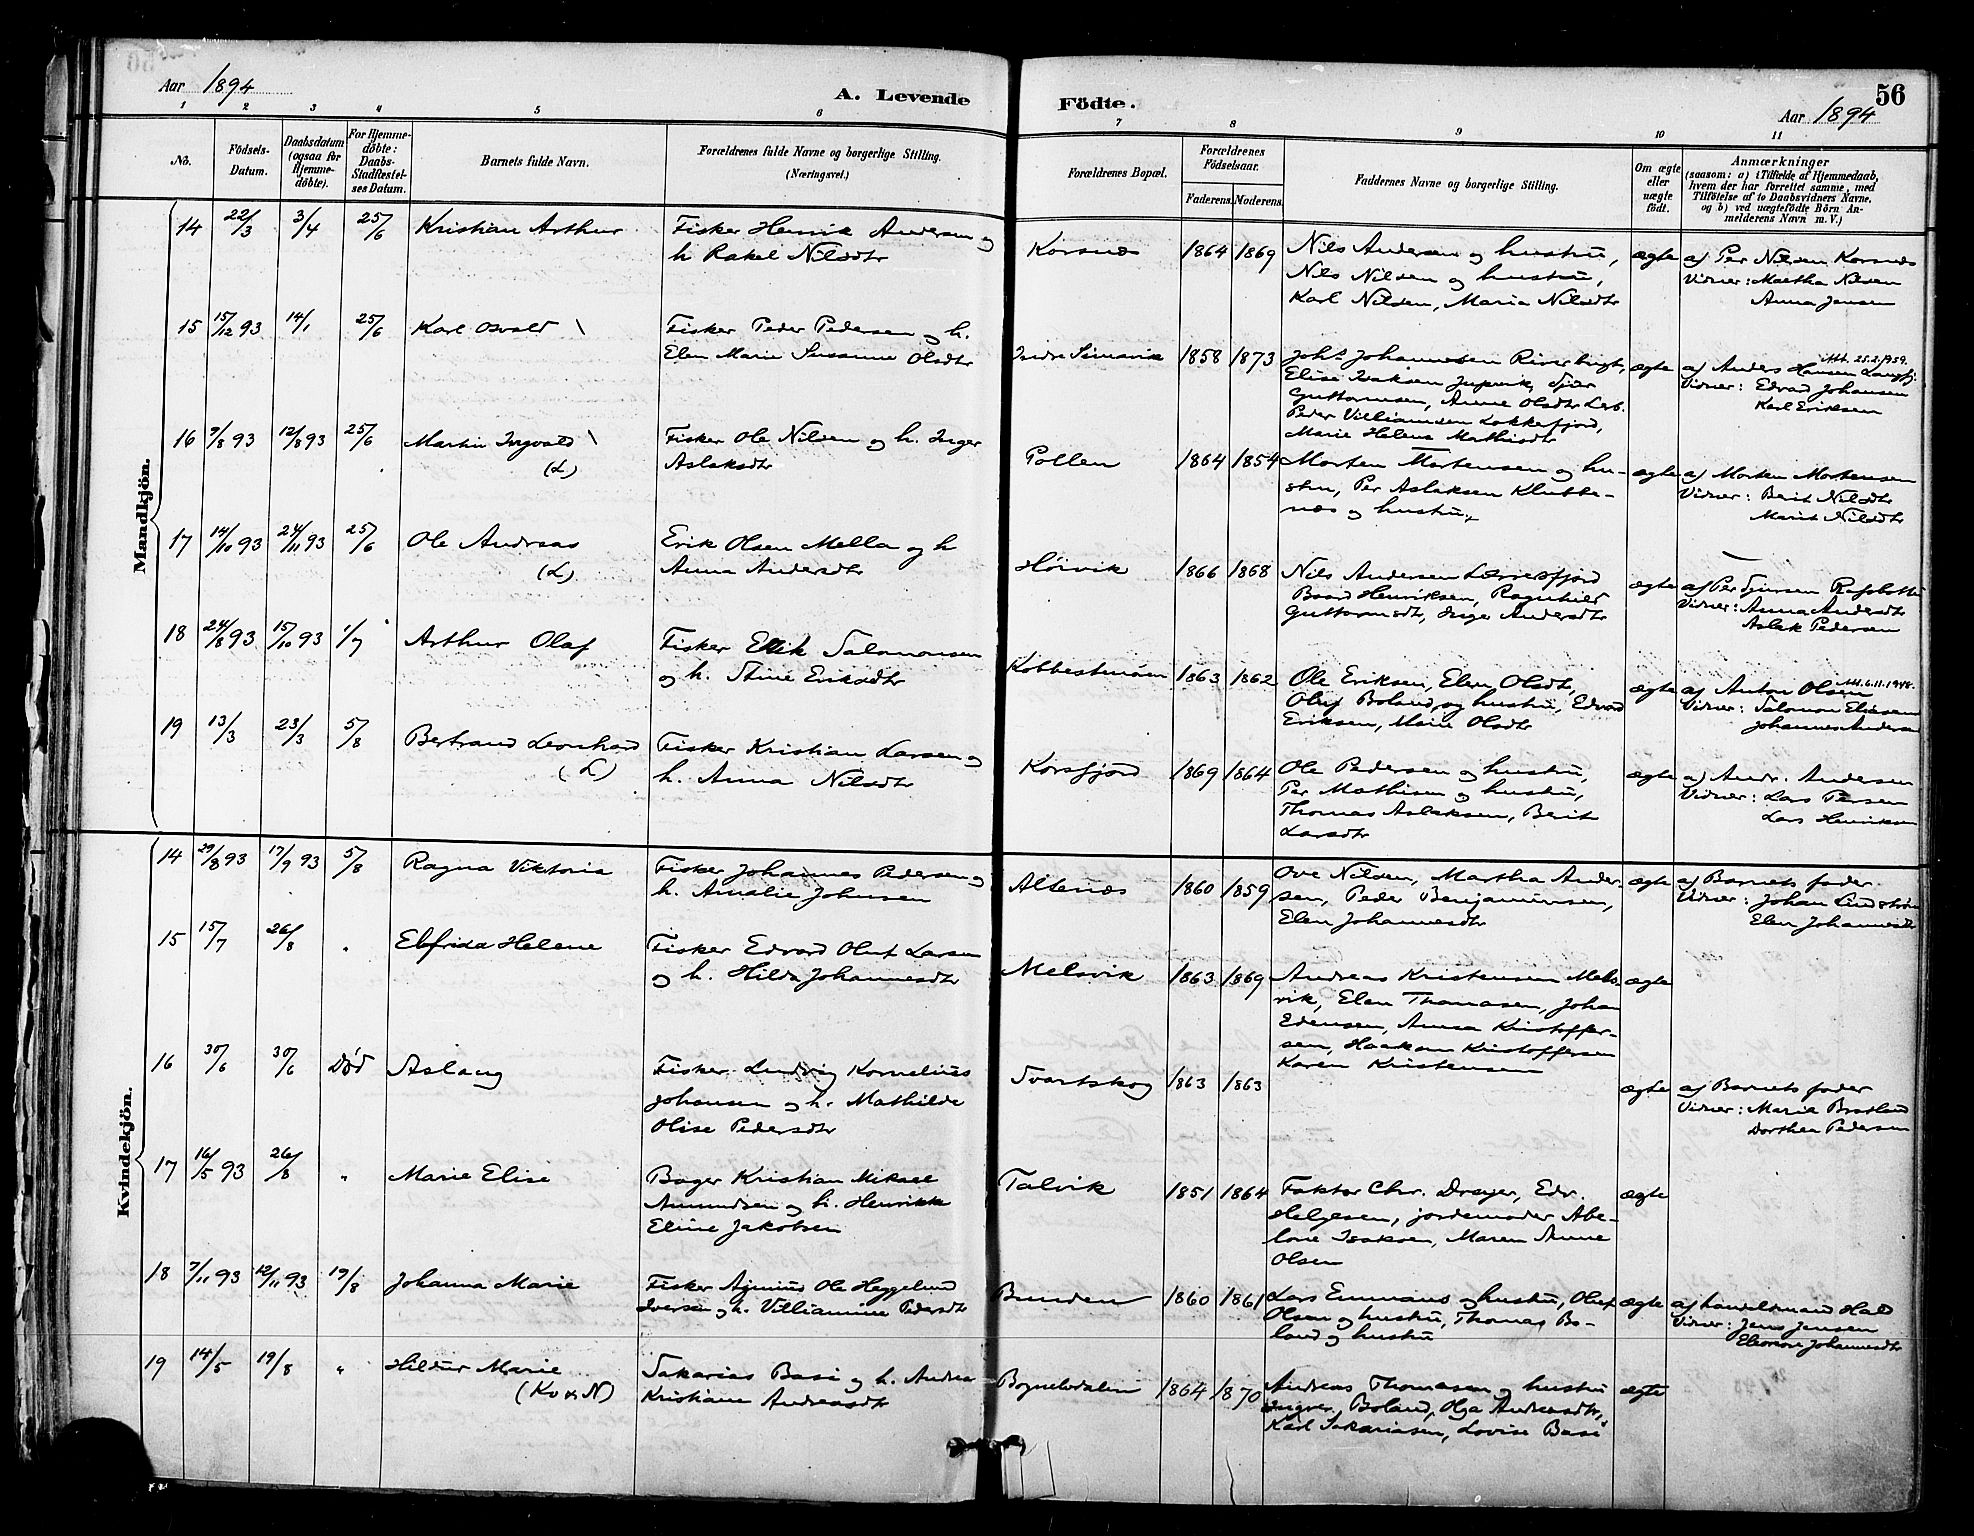 Aar 1894
A. Levende
Födte.
56
Aar 1894
1 2 3 4 5 6 7 8 9 10 11
No.
Födsels-
Datum.
Daabsdatum
(ogsaa for
Hjemme-
døbte).
For Hjemme-
døbte:
Daabs-
Stadfæstel-
ses Datum.
Barnets fulde Navn.
Forældrenes fulde Navne og borgerlige Stilling.
(Næringsvei.)
Forældrenes Bopæl.
Forældrenes
Födselsaar.
Faderens. Moderens.
Faddernes Navne og borgerlige Stilling.
Om ægte
eller
uægte
født.
Anmærkninger
(saasom: a) i Tilfælde af Hjemmedaab,
hvem der har forrettet samme, med
Tilföielse af to Daabsvidners Navne,
og b) ved uægtefödte Börn An-
melderens Navn m. V.)
Mandkjön.
14 22/3 3/4 25/6 Kristian Arthur
Fisker Henrik Andersen og
h. Rakel Nilsdtr
Korsnæs 1864 1869
Nils Andersen og hustru,
Nils Nilsen og hustru,
Karl Nilsen, Maria Nilsdtr
ægte
af Per Nilsen Korsnæs
Vidner: Martha Nilsen
Anna Jensen
15 15/12 93 14/1 25/6 Karl Osvald
Fisker Peder Pedersen og h.
Elen Marie Susanne Olsdtr
Indre Simavik 1858 1873
Johs Johannessen Riverbugt,
Elise Isaksen
Guttormsen, Anne Olsdtr
Peder Villiamsen Lokkefjord,
Marie Helene Mathisdtr
ægte
Att. 25.2.1959.
af Anders Hansen Langfj.
Vidner: Edvard Johansen
Karl Eriksen
16 7/8 93 12/8 93 25/6 Martin Ingvald
(L)
Fisker Ole Nilsen og h. Inger
Aslaksdtr
Pollen 1864 1854
Morten Mortensen og hu-
stru, Per Aslaksen Klubbe-
næs og hustru,
ægte
af Morten Mortensen
Vidner: Berit Nilsdtr
Marit Nilsdtr
17 14/10 93 24/11 93 25/6 Ole Andreas
(L)
Erik Olsen Mella og h
Anna Andersdtr
Höivik 1866 1868
Nils Andersen Lerresfjord
Baard Henriksen, Ragnhild
Guttormsdtr, Inge Andersdtr
ægte
af Per Rafsbotn
Vidner: Anna Andersdtr
Aslak Pedersen
18 24/8 93 15/10 93 1/7 Arthur Olaf
Fisker Erik Salomonsen
og h. Stine Eriksdtr
1863 1862
Ole Eriksen, Elen Olsdtr,
Oluf Boland og hustru, Edvard
Eriksen, Marie Olsdtr
ægte
Att. 6.11.1948.
af Anton Olsen
Vidner: Salomon Eliassen
Johannes Andersen
19 13/3 23/3 5/8 Bertrand Leonhard
(L)
Fisker Kristian Larsen og
h. Anna Nilsdtr
Korsfjord 1869 1864
Ole Pedersen og hustru,
Per Mathisen og hustru,
Thomas Aslaksen, Berit
Larsdtr
ægte
af Andr. Andersen
Vidner: Lars Persen
Lars Henriksen
Kvindekjön.
14 29/8 93 17/9 93 5/8 Ragna Viktoria
Fisker Johannes Pedersen og
h. Amalie Johnsen
Altenæs 1860 1859
Ove Nilsen, Martha Ander-
sen, Peder Benjaminsen,
Elen Johannesdtr
ægte
af Barnets fader.
Vidner: Johan Lindström
Elen Johannesdtr
15 15/7 26/8 " Elfrida Helene
Fisker Edvard Oluf Larsen
og h. Hilda Johannesdtr
Melsvik 1863 1869
Andreas Kristensen Mels-
vik, Elen Thomasen, Johan
Edensen, Anna Kristoffer-
sen, Haakon Kristoffersen
Karen Kristensen
ægte
16 30/6 30/6 Död Aslaug
Fisker Ludvig Kornelius
Johansen og h. Mathilde
Olise Pedersdtr
Svartskog 1863 1863
ægte
af Barnets fader
Vidner: Marie Bratland
Dorthea Pedersen
17 16/5 93 26/8 " Marie Elise
Bager Kristian Mikael
Amundsen og h. Henrikke
Eline Jakobsen
Talvik 1851 1864
Faktor Chr. Dreyer, Edv.
Helgesen, jordemoder Abe-
lone Isaksen, Maren Anne
Olsen
ægte
18 7/11 93 12/11 93 19/8 Johanna Marie
Fisker Ole Heggelund
Iversen og h. Villiamine Pedersdtr
Bunden 1860 1861
Lars Emmaus og hustru, Oluf
Olsen og hustru, Thomas Bo-
land og hustru
ægte
af handelsmand Hald
Vidner: Jens Jensen
Eleonore Johannesdtr
19 14/5 19/8 " Hildur Marie
(Kv & N)
Sakarias Basi og h. Andrea
Kristiane Andreasdtr
Bognelvdalen 1864 1870
Andreas Thomasen og hustru
Ingver Boland, Olga Andreasdtr,
Karl Sakariasen, Lovise Basi
ægte